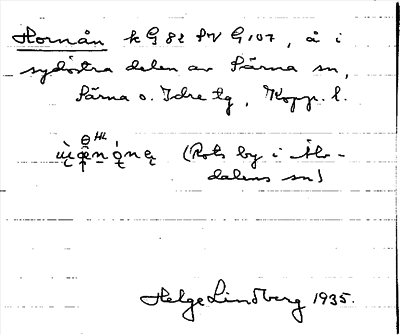 Hornån k G 82 SV G 107, å i
sydöstra delen av Särna sn,
Särna o. Idre tg, Kopp. l.
(Rots by i Älv-
dalens sn)
Helge Lindberg 1935.